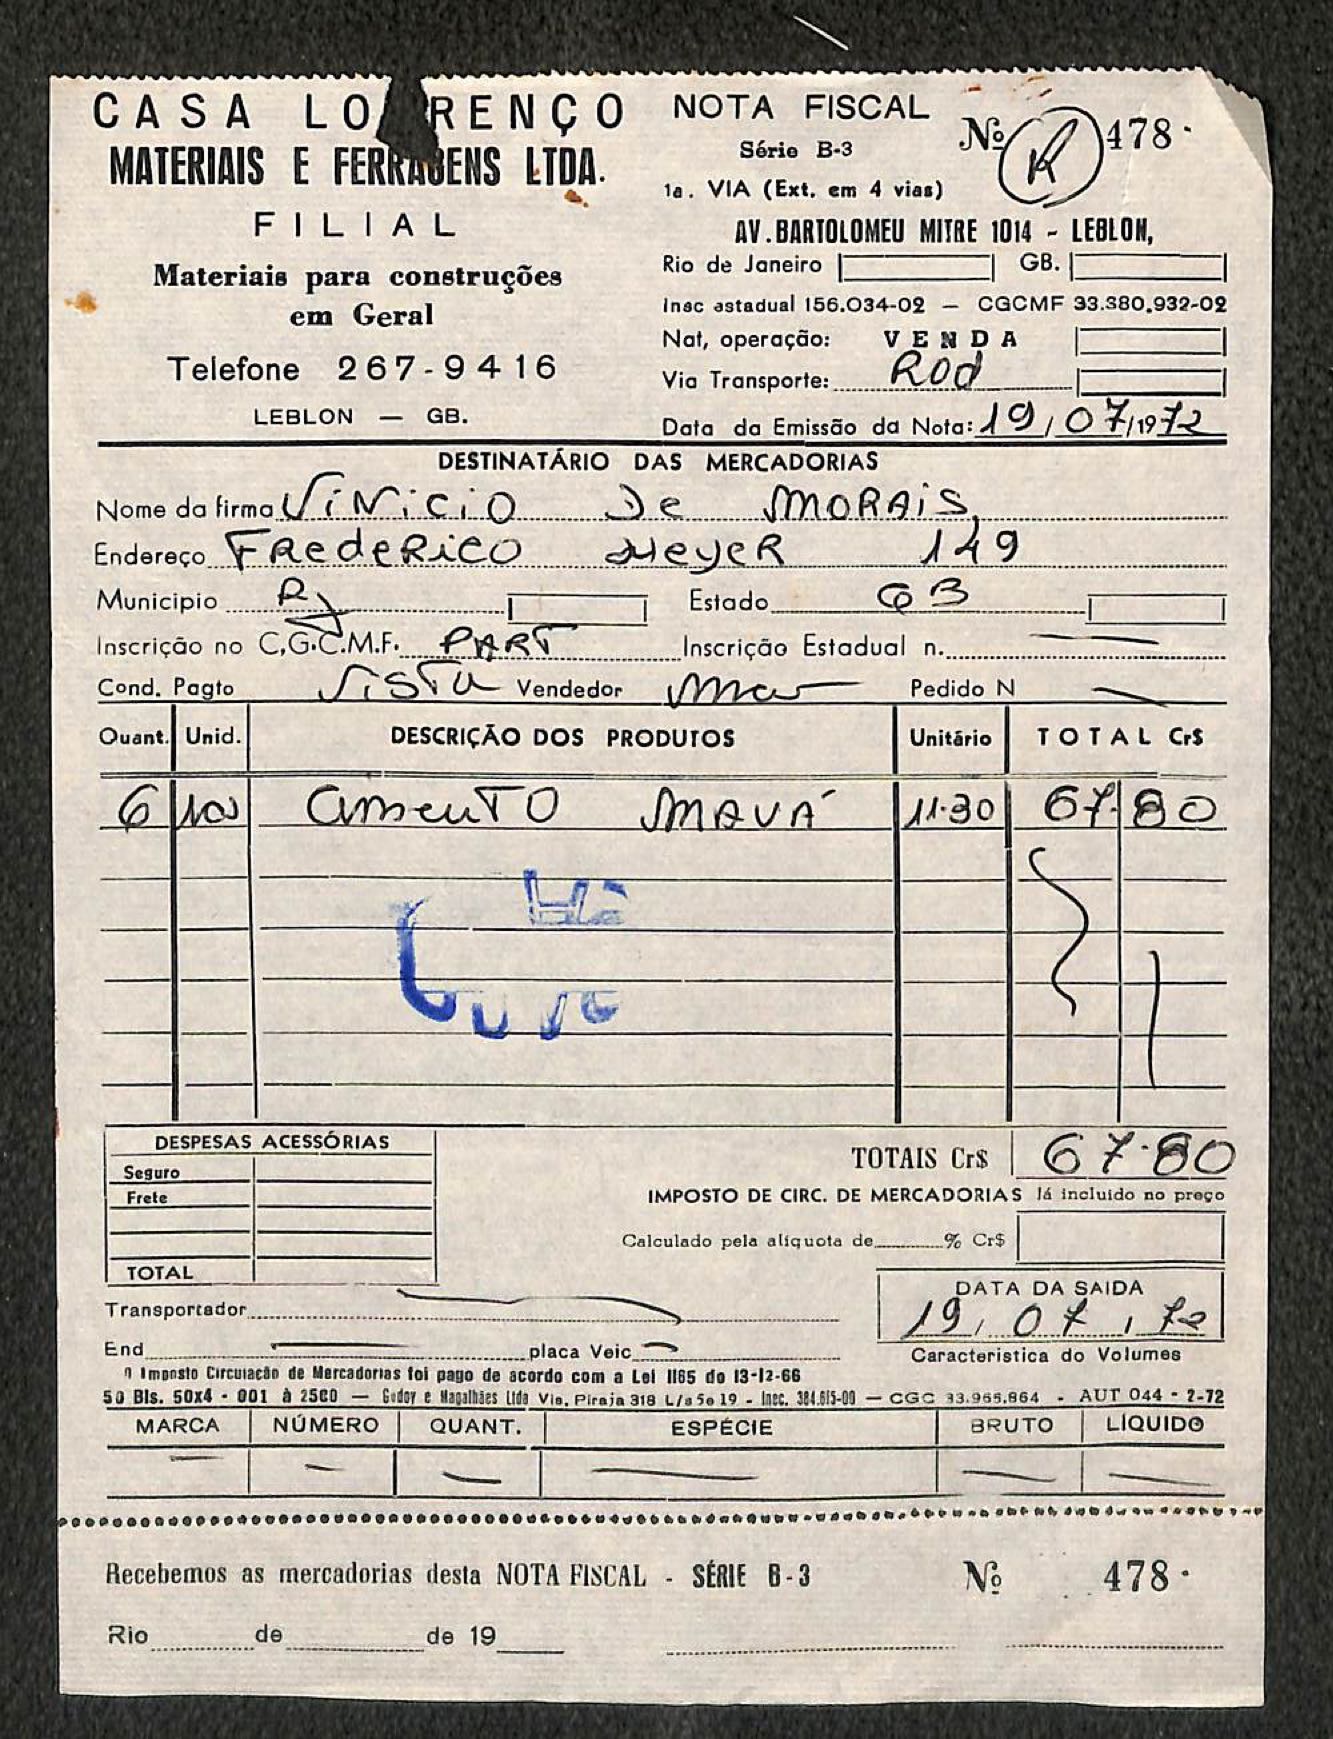 CASA LOURENÇO
MATERIAIS E FERRAGENS LTDA.
FILIAL
Materiais para construções
em Geral
Telefone 267-9416
LEBLON — GB.
NOTA FISCAL
Nº R 478.
Série B-3
1a. VIA (Ext. em 4 vias)
AV. BARTOLOMEU MITRE 1014 - LEBLON,
Rio de Janeiro GB.
Insc estadual 156.034-02 — CGCMF 33.380.932-02
Nat, operação: VENDA
Via Transporte: Rod
Data da Emissão da Nota: 19/07/1972
DESTINATÁRIO DAS MERCADORIAS
Nome da firma Vinicio De MORAIS
Endereço FRedeRico Meyer 149
Municipio RJ Estado GB
Inscrição no C.G.C.M.F. PART Inscrição Estadual n. —
Cond. Pagto Vista Vendedor Pedido N —
Quant. Unid. DESCRIÇÃO DOS PRODUTOS Unitário TOTAL Cr$
6 cimento MAUÁ 11.30 67.80
DESPESAS ACESSÓRIAS
Seguro
Frete
TOTAL
TOTAIS Cr$ 67.80
IMPOSTO DE CIRC. DE MERCADORIAS Já incluido no preço
Calculado pela aliquota de % Cr$
DATA DA SAIDA
19, 07, 72
Transportador
End — placa Veic —
Caracteristica do Volumes
O Imposto Circulação de Mercadorias foi pago de acordo com a Lei 1165 de 13-12-66
50 Bls. 50x4 - 001 à 2500 — Godoy e Magalhães Ltda Vis. Piraja 318 L/a 5e 19 - Insc. 384.615-00 — CGC 33.965.864 - AUT 044 - 2-72
MARCA NÚMERO QUANT. ESPÉCIE BRUTO LÍQUIDO
— — — — — —
Recebemos as mercadorias desta NOTA FISCAL - SÉRIE B-3 Nº 478.
Rio de de 19